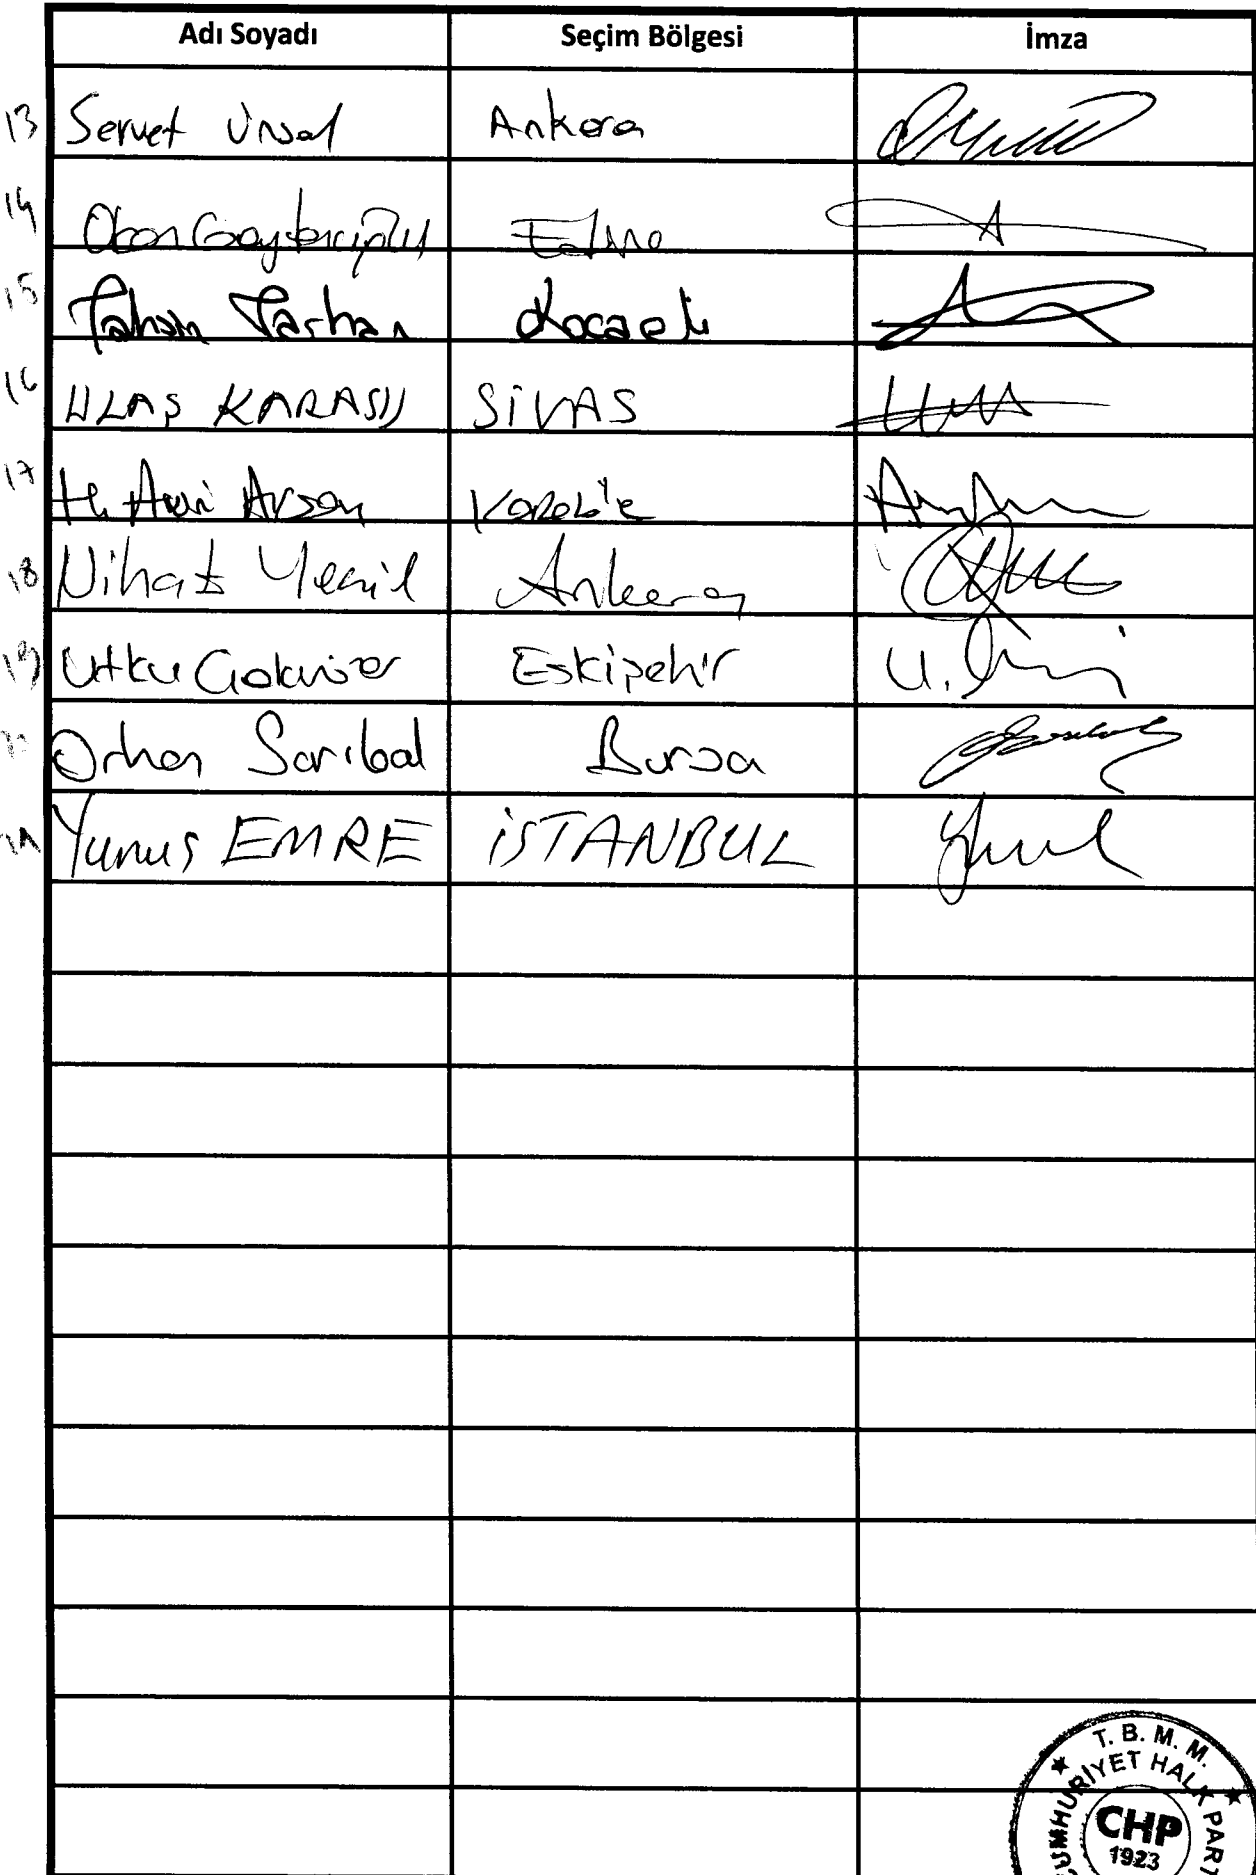 Adı Soyadı Seçim Bölgesi İmza
13 Servet Ünsal Ankara
14 Okan Gaytancıoğlu Edirne
15 Tahsin Tarhan Kocaeli
16 ULAŞ KARASU SİVAS
17 Kırklareli
18 Nihat Yeşil Ankara
19 Utku Çakırözer Eskişehir
Orhan Sarıbal Bursa
21 Yunus EMRE İSTANBUL
T. B. M. M.
CUMHURİYET HALK PARTİ
CHP
1923